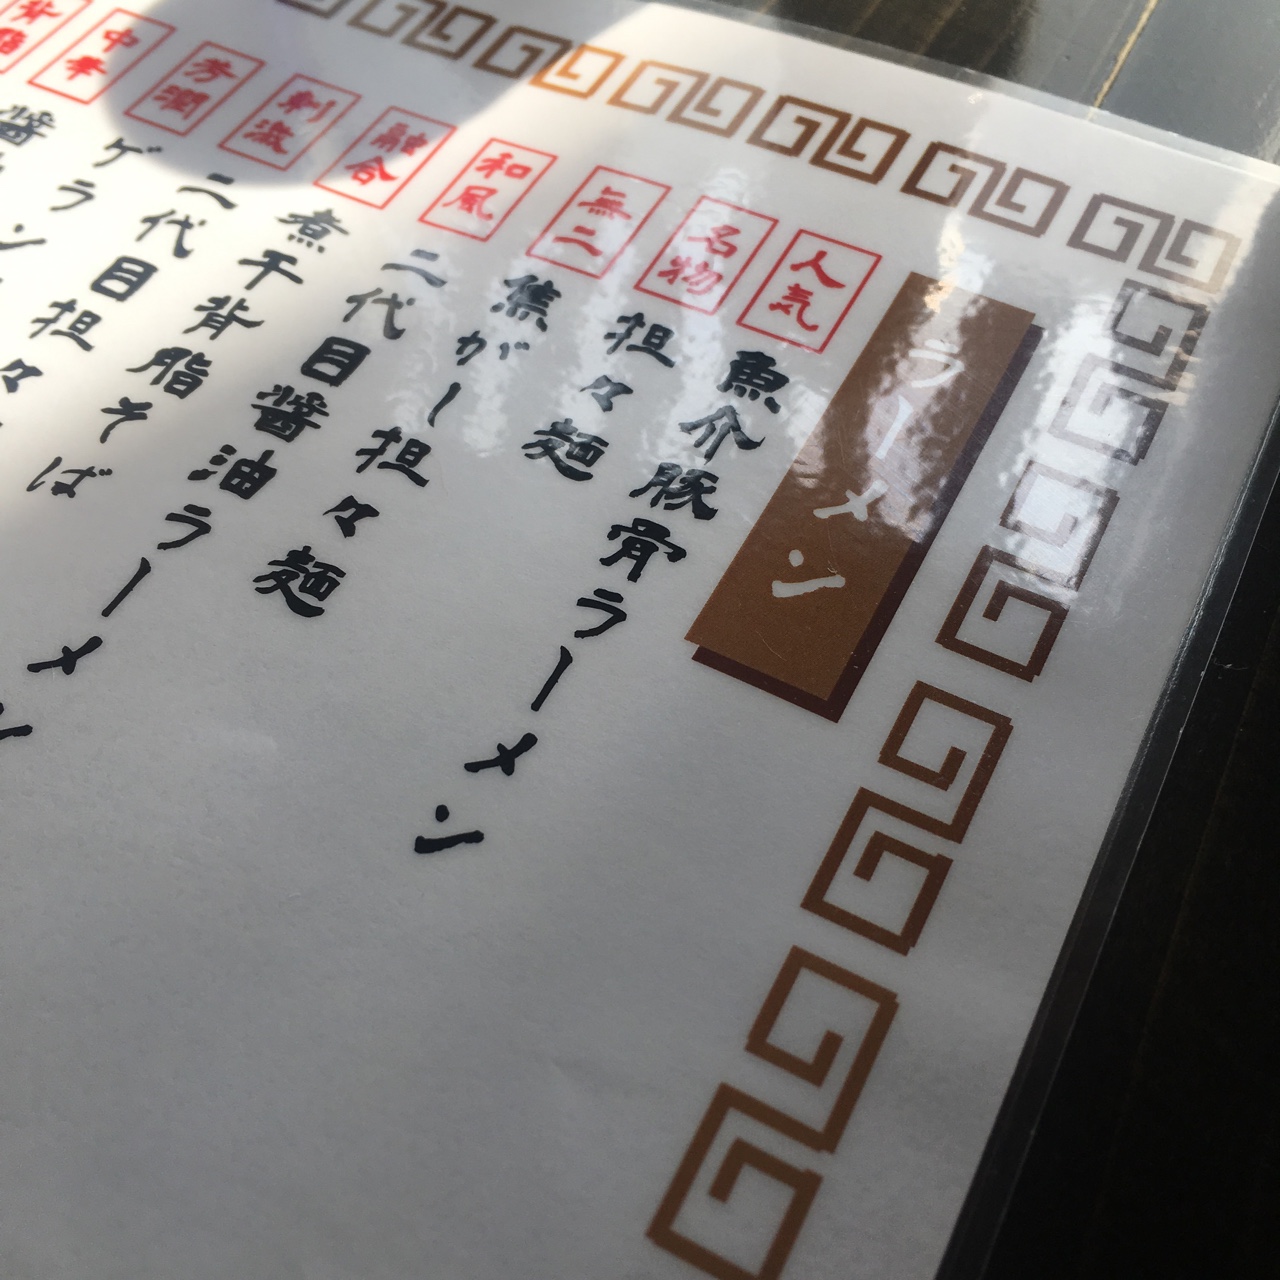 ラーメン
人気
魚介豚骨ラーメン
名物
担々麺
無二
焦がし担々麺
和風
二代目醤油ラーメン
融合
煮干背脂そば
刺激
二代目担々
芳潤
ゲラン
中華
醤
背脂